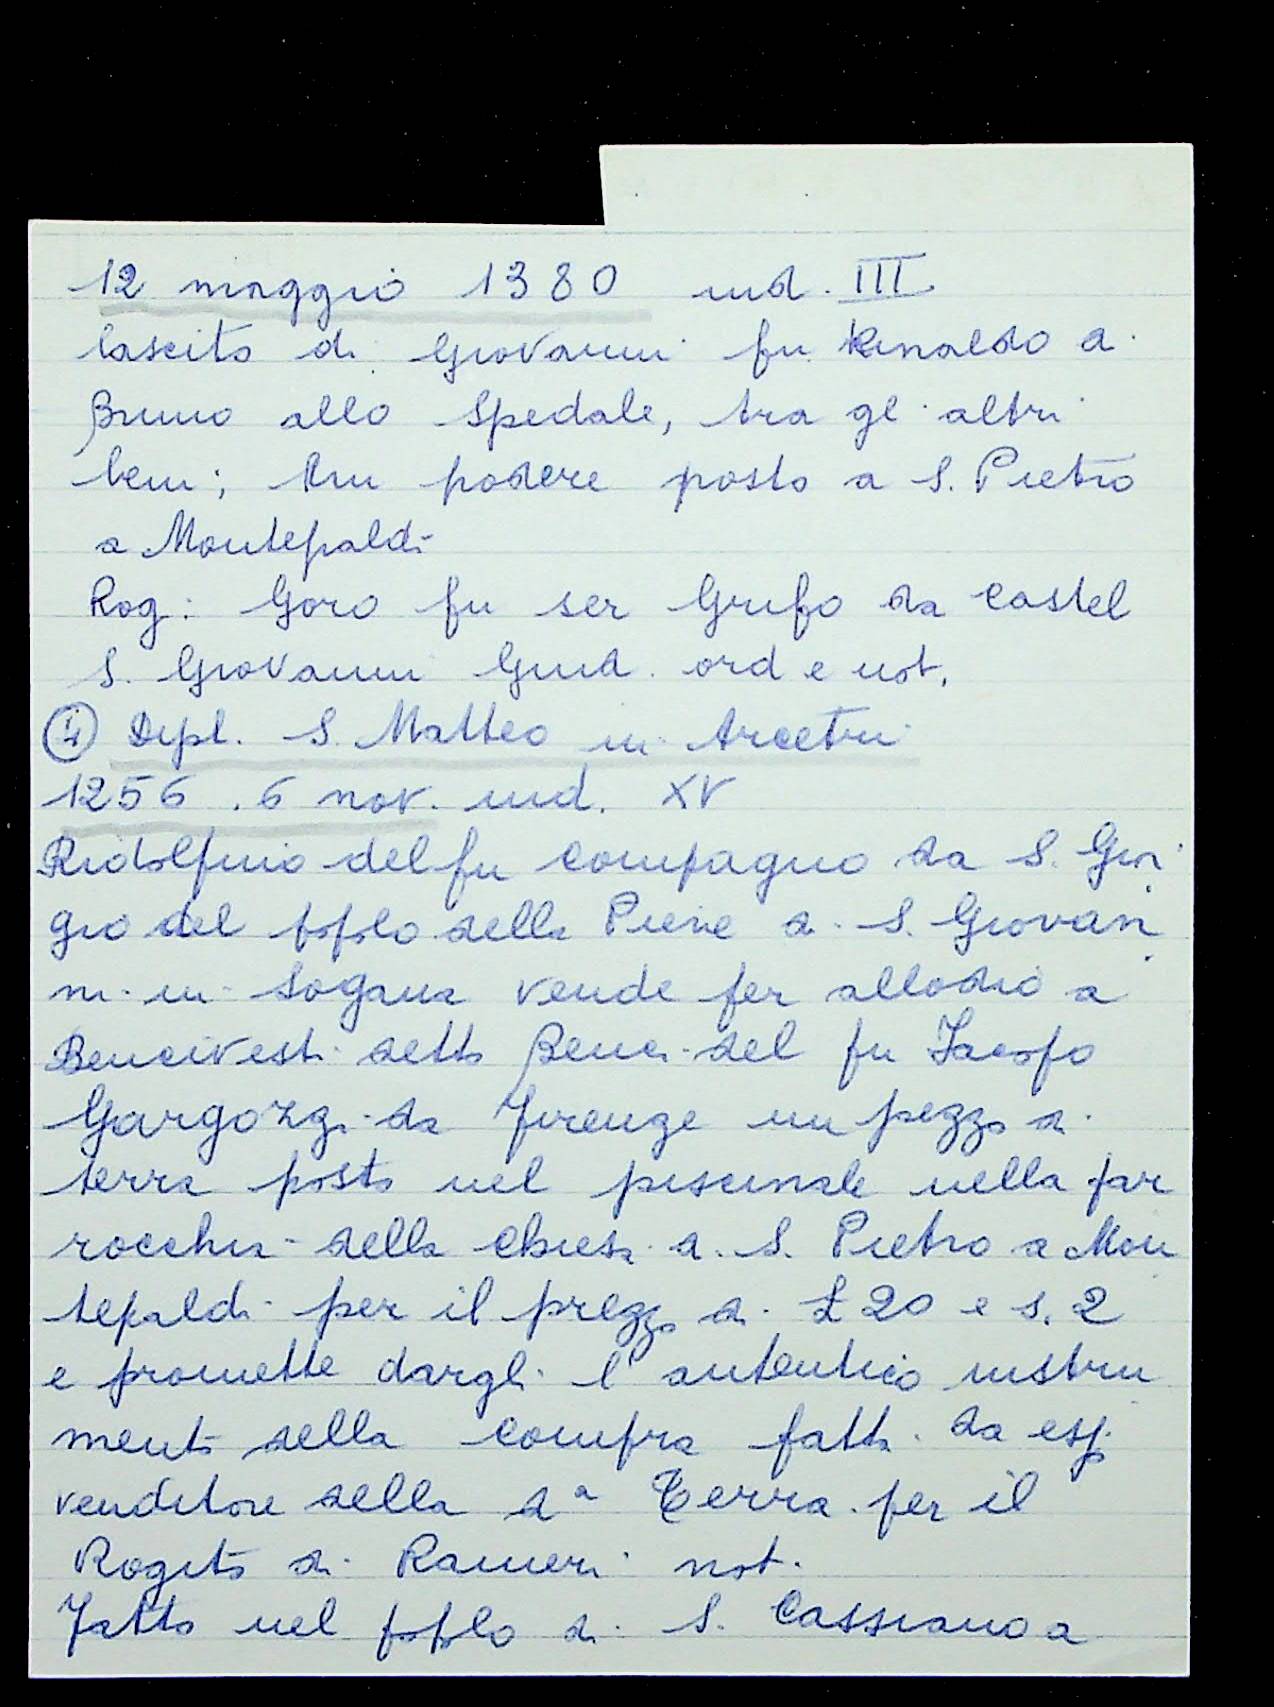 12 maggio 1380 ind. III
lascito di Giovanni fu Rinaldo di
Bruno allo Spedale, tra gli altri
beni; un podere posto a S. Pietro
a Montepaldi
Rog: Goro fu ser Grifo da Castel
S. Giovanni Giud. ord e not.
④ Dipl. S. Matteo in Arcetri
1256. 6 nov. ind. XV
Ridolfino del fu Compagno da S. Gior
gio del popolo della Pieve di S. Giovan
ni in Sogana vende per allodio a
Bencivesti detto Benci del fu Jacopo
Gargozzi da Firenze un pezzo di
terra posto nel piscinale nella par
rocchia della chiesa di S. Pietro a Mon
tepaldi per il prezzo di £ 20 e s. 2
e promette dargli l'autentico instru
mento della compra fatta da esso
venditore della dª Terra per il
Rogito di Ranieri not.
Fatto nel popolo di S. Cassiano a